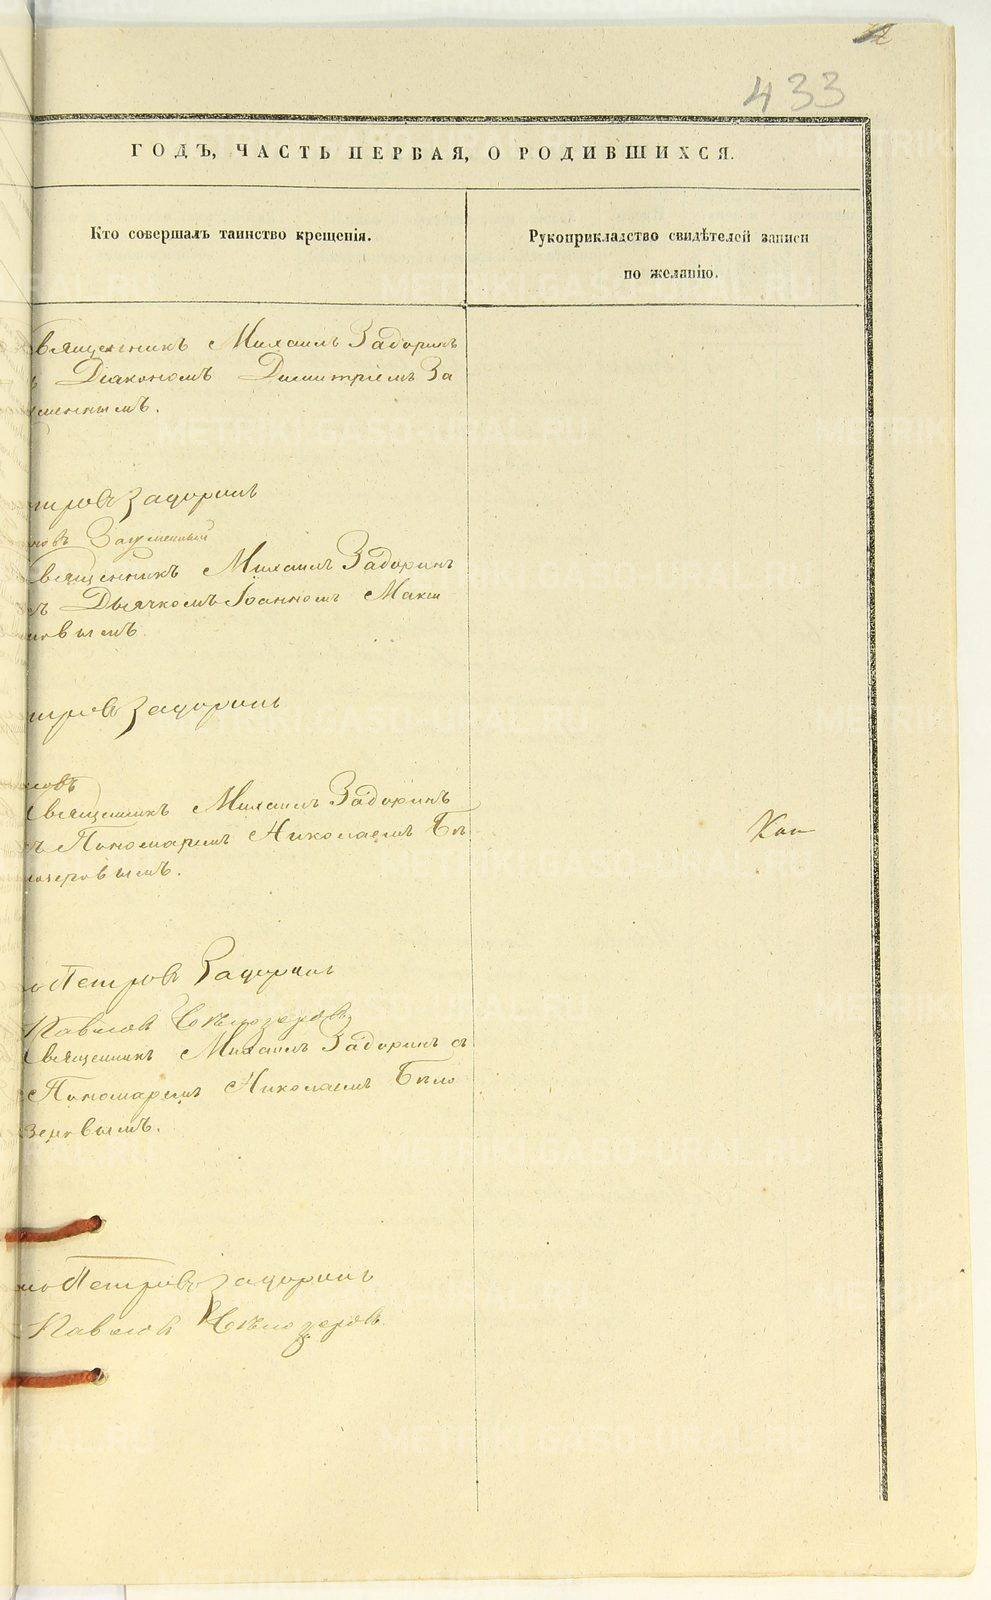 433
ГОДЪ, ЧАСТЬ ПЕРВАЯ, О РОДИВШИХСЯ.
Кто совершалъ таинство крещенія.
Рукоприкладство свидѣтелей записи
по желанію.
Священникъ Михаилъ Задоринъ
Діакономъ Димитріемъ За
уменнымъ.
Задоринъ
Зауменный
Священникъ Михаилъ Задоринъ
съ Дьячкомъ Іоанномъ Макси
мовымъ.
Задоринъ
Священникъ Михаилъ Задоринъ
съ Пономаремъ Николаемъ Бѣ
лозеровымъ.
Кон
Петровъ Задоринъ
Павловъ Бѣлозеровъ
Священникъ Михаилъ Задоринъ съ
Пономаремъ Николаемъ Бѣло
зеровымъ.
Петровъ Задоринъ
Павловъ Бѣлозеровъ
METRIKI.GASO-URAL.RU